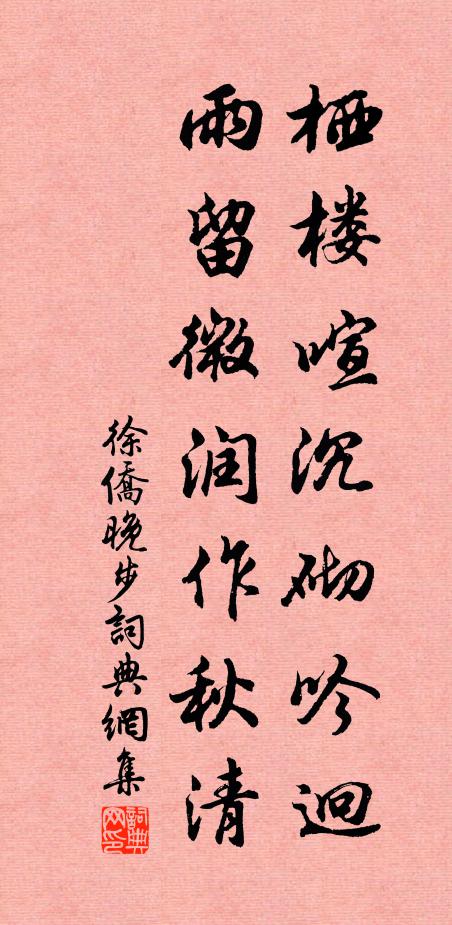 栖楼喧沉砌吟迥
雨留微润作秋清
徐僑晚步詞典網集
詞典网印